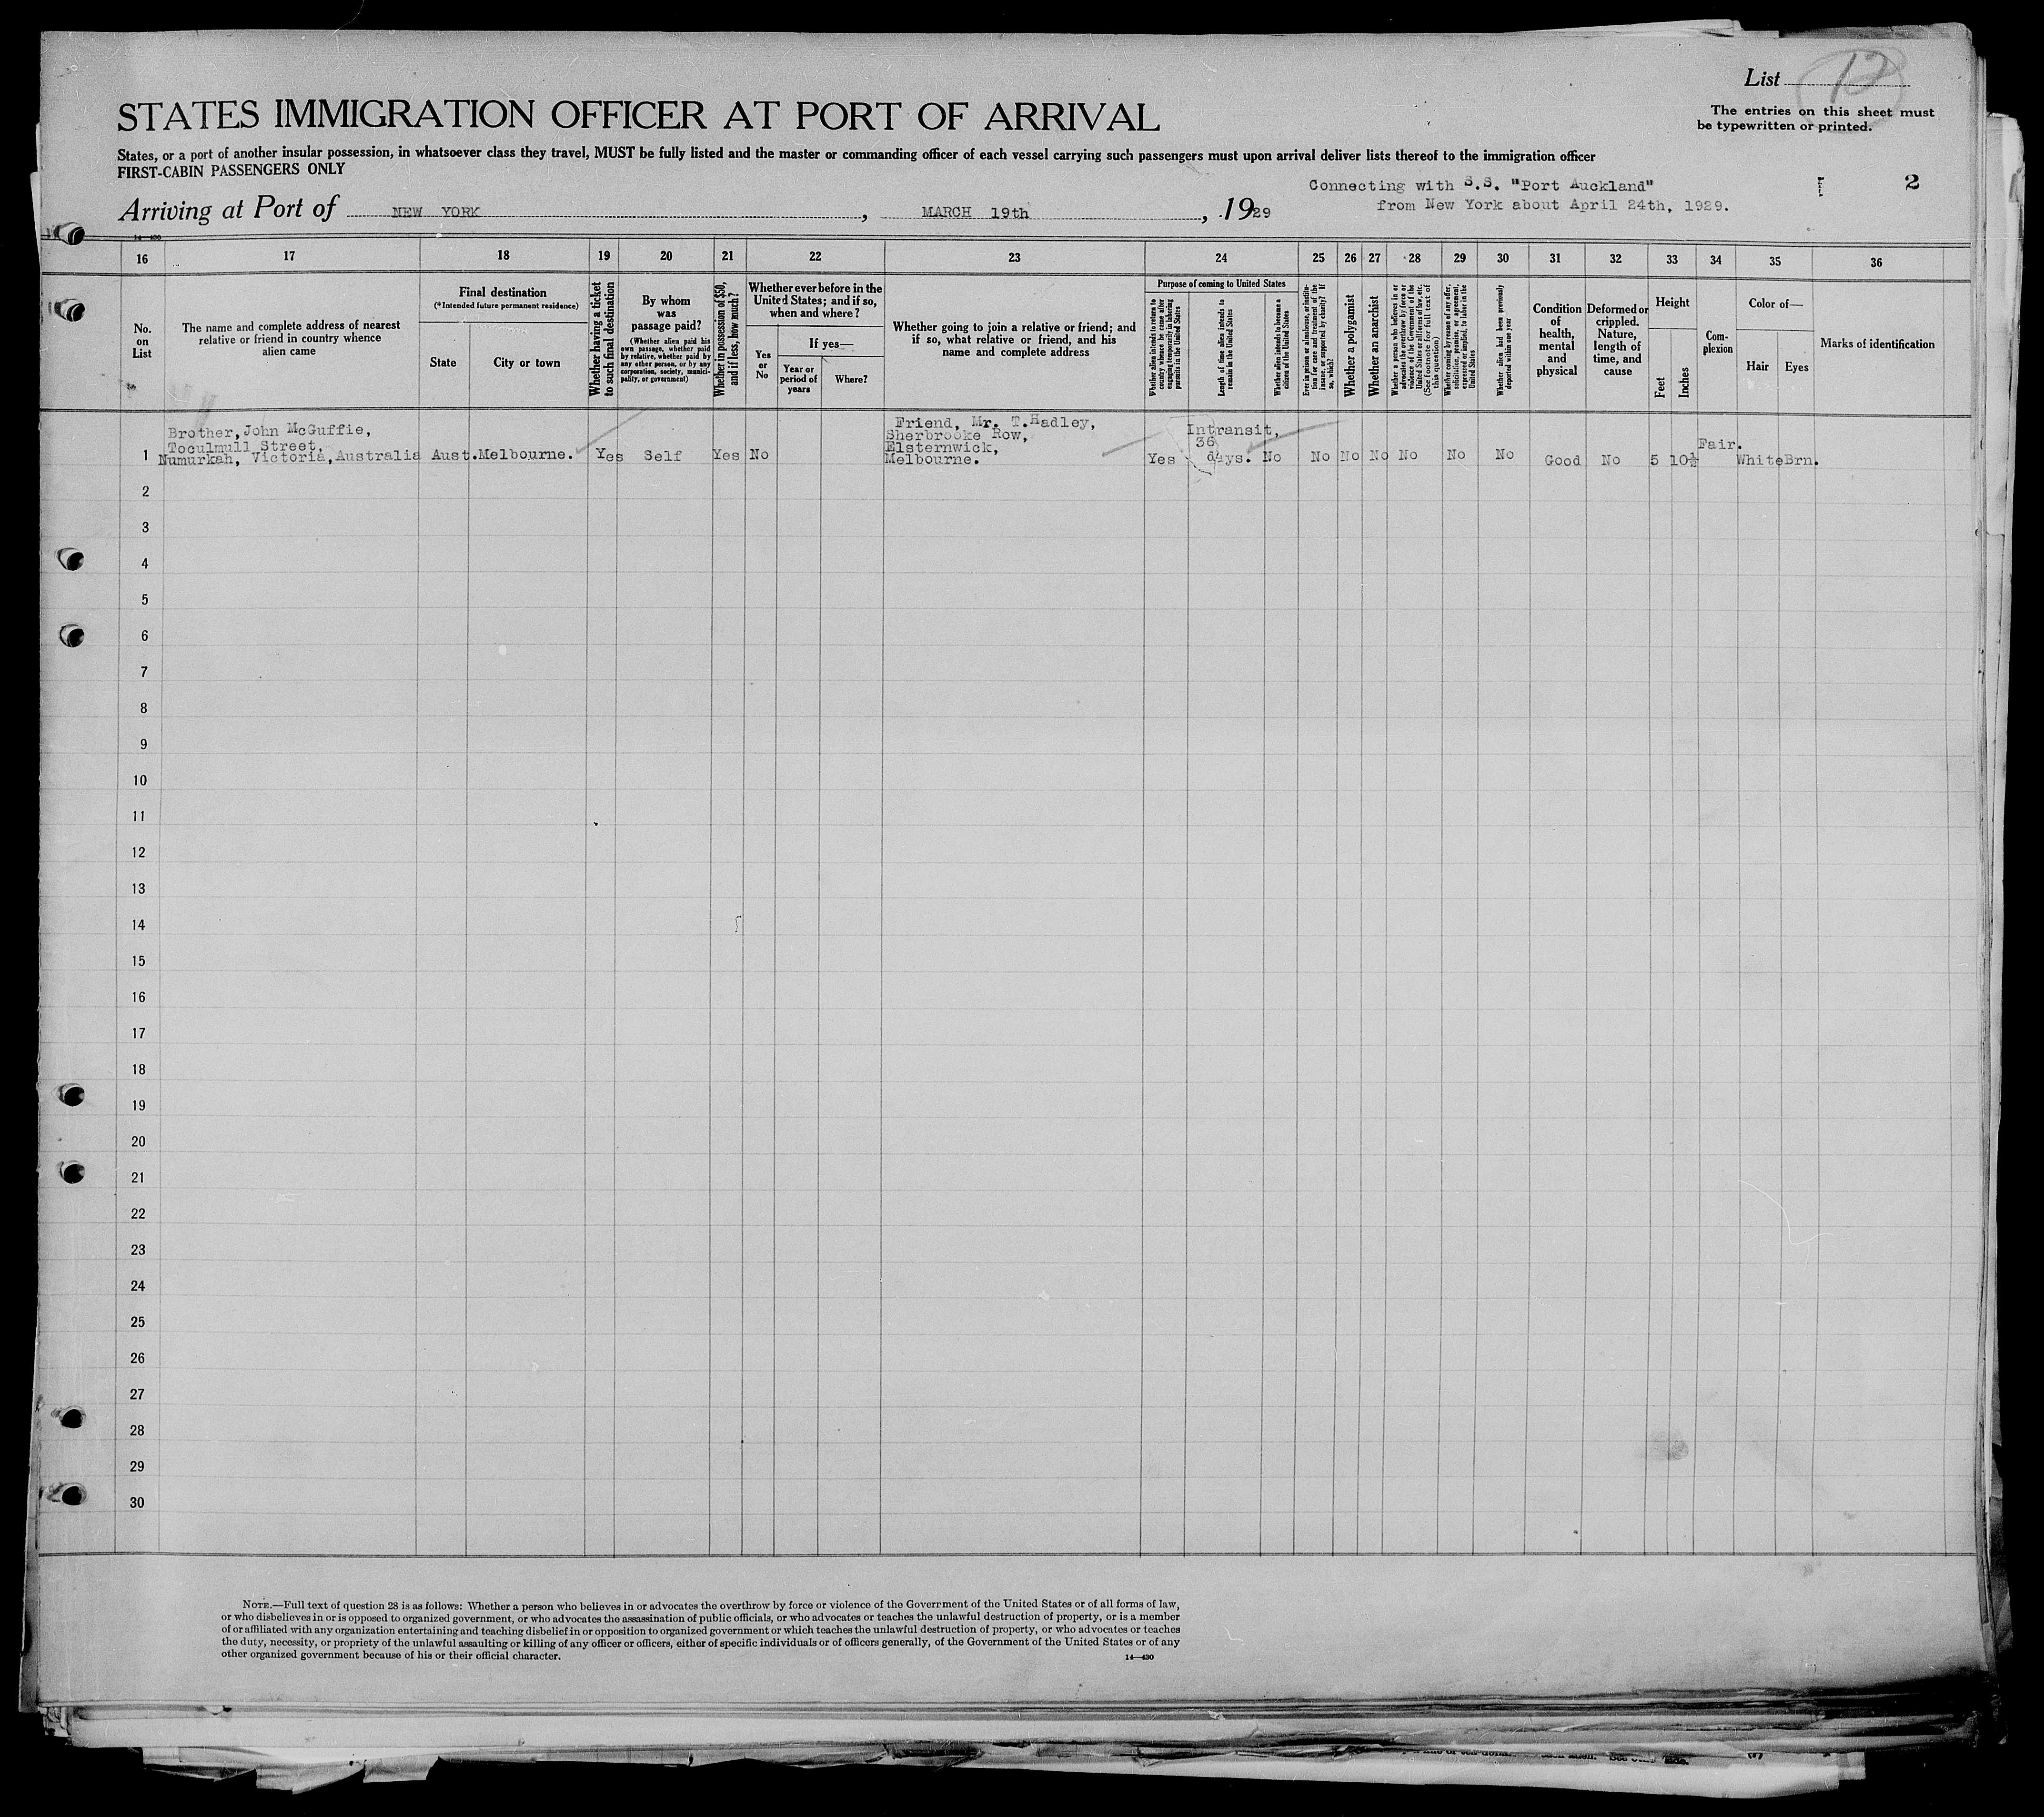 List 12
STATES IMMIGRATION OFFICER AT PORT OF ARRIVAL
The entries on this sheet must
be typewritten or printed.
States, or a port of another insular possession, in whatsoever class they travel, MUST be fully listed and the master or commanding officer of each vessel carrying such passengers must upon arrival deliver lists thereof to the immigration officer
FIRST-CABIN PASSENGERS ONLY
Connecting with S.S. "Port Auckland"
from New York about April 24th, 1929.
2
Arriving at Port of NEW YORK, MARCH 19th, 1929
14—430
16 17 18 19 20 21 22 23 24 25 26 27 28 29 30 31 32 33 34 35 36
No.
on
List
The name and complete address of nearest
relative or friend in country whence
alien came
Final destination
(*Intended future permanent residence)
State
City or town
Whether having a ticket
to such final destination
By whom
was
passage paid?
(Whether alien paid his
own passage, whether paid
by relative, whether paid by
any other person, or by any
corporation, society, munici-
pality, or government)
Whether in possession of $50,
and if less, how much?
Whether ever before in the
United States; and if so,
when and where?
Yes
or
No
If yes—
Year or
period of
years
Where?
Whether going to join a relative or friend; and
if so, what relative or friend, and his
name and complete address
Purpose of coming to United States
Whether alien intends to return to
country whence he came after
engaging temporarily in laboring
pursuits in the United States
Length of time alien intends to
remain in the United States
Whether alien intends to become a
citizen of the United States
Ever in prison or almshouse, or institu-
tion for care and treatment of the
insane, or supported by charity? If
so, which?
Whether a polygamist
Whether an anarchist
Whether a person who believes in or
advocates the overthrow by force or
violence of the Government of the
United States or all forms of law, etc.
(See footnote for full text of
this question)
Whether coming by reason of any offer,
solicitation, promise, or agreement,
expressed or implied, to labor in the
United States
Whether alien had been previously
deported within one year
Condition
of
health,
mental
and
physical
Deformed or
crippled.
Nature,
length of
time, and
cause
Height
Feet
Inches
Com-
plexion
Color of—
Hair
Eyes
Marks of identification
Brother, John McGuffie,
Toculmull Street,
1 Numurkah, Victoria, Australia Aust. Melbourne. Yes Self Yes No
Friend, Mr. T. Hadley,
Sherbrooke Row,
Elsternwick,
Melbourne.
Yes
Intransit,
36
days.
No No No No No No No Good No 5 10½ Fair. White Brn.
2
3
4
5
6
7
8
9
10
11
12
13
14
15
16
17
18
19
20
21
22
23
24
25
26
27
28
29
30
NOTE.—Full text of question 28 is as follows: Whether a person who believes in or advocates the overthrow by force or violence of the Government of the United States or of all forms of law,
or who disbelieves in or is opposed to organized government, or who advocates the assassination of public officials, or who advocates or teaches the unlawful destruction of property, or is a member
of or affiliated with any organization entertaining and teaching disbelief in or opposition to organized government or which teaches the unlawful destruction of property, or who advocates or teaches
the duty, necessity, or propriety of the unlawful assaulting or killing of any officer or officers, either of specific individuals or of officers generally, of the Government of the United States or of any
other organized government because of his or their official character.
14—430